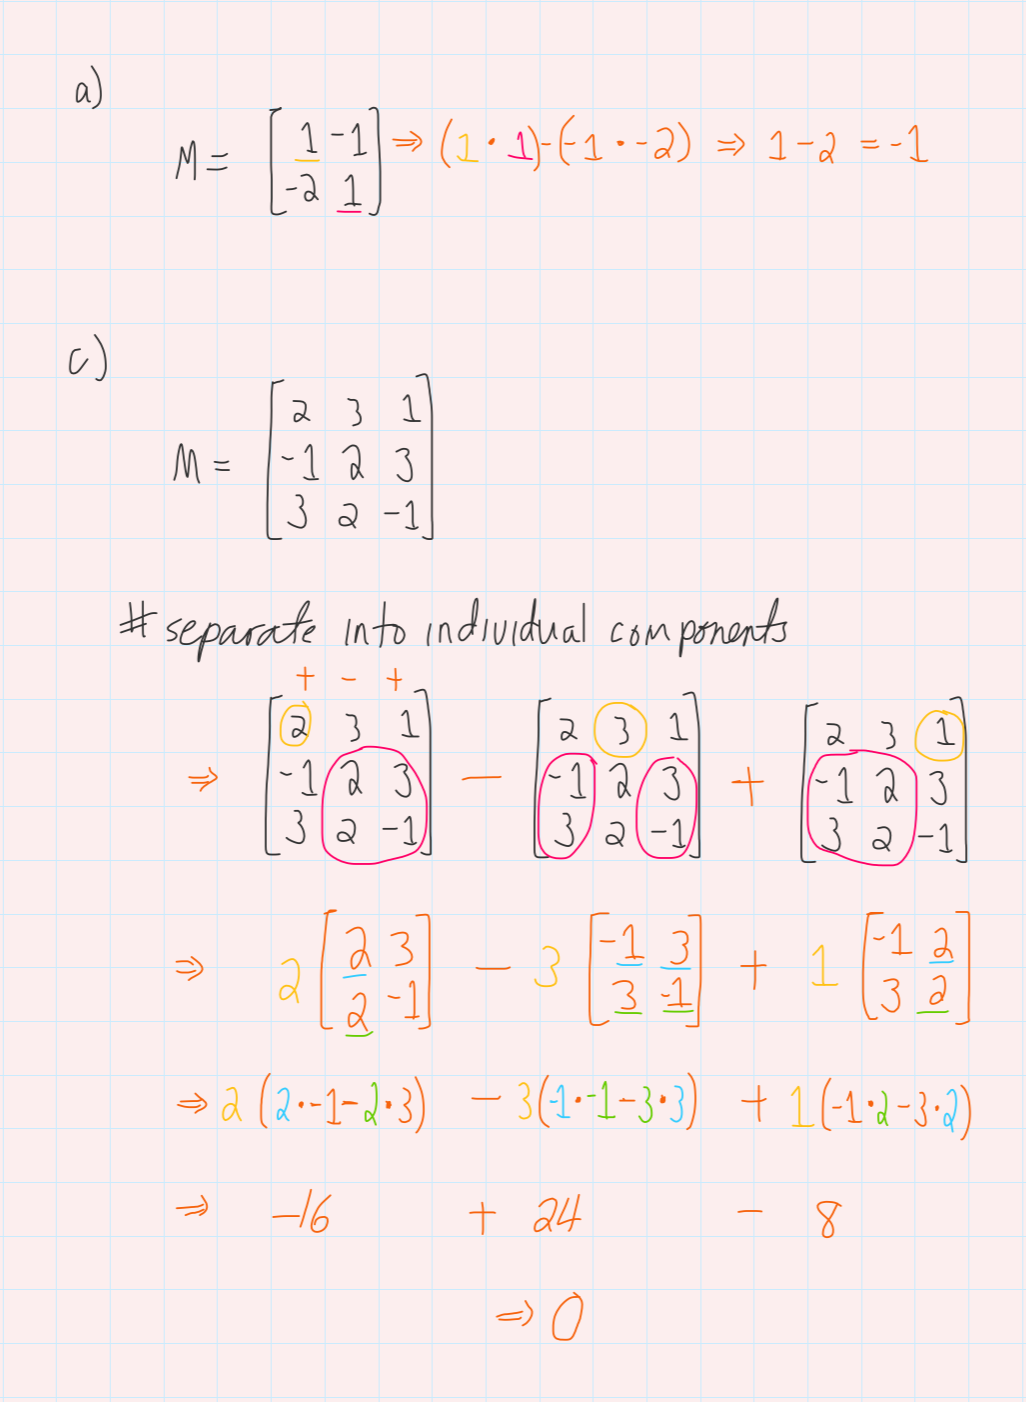 a)
M = [1 -1
-2 1] ⇒ (1 · 1)-(-1 · -2) ⇒ 1-2 = -1
c)
M = [2 3 1
-1 2 3
3 2 -1]
# separate into individual components
+ - +
⇒ [2 3 1
-1 2 3
3 2 -1] - [2 3 1
-1 2 3
3 2 -1] + [2 3 1
-1 2 3
3 2 -1]
⇒ 2 [2 3
2 -1] - 3 [-1 3
3 -1] + 1 [-1 2
3 2]
⇒ 2 (2·-1-2·3) - 3(-1·-1-3·3) + 1(-1·2-3·2)
⇒ -16 + 24 - 8
⇒ 0